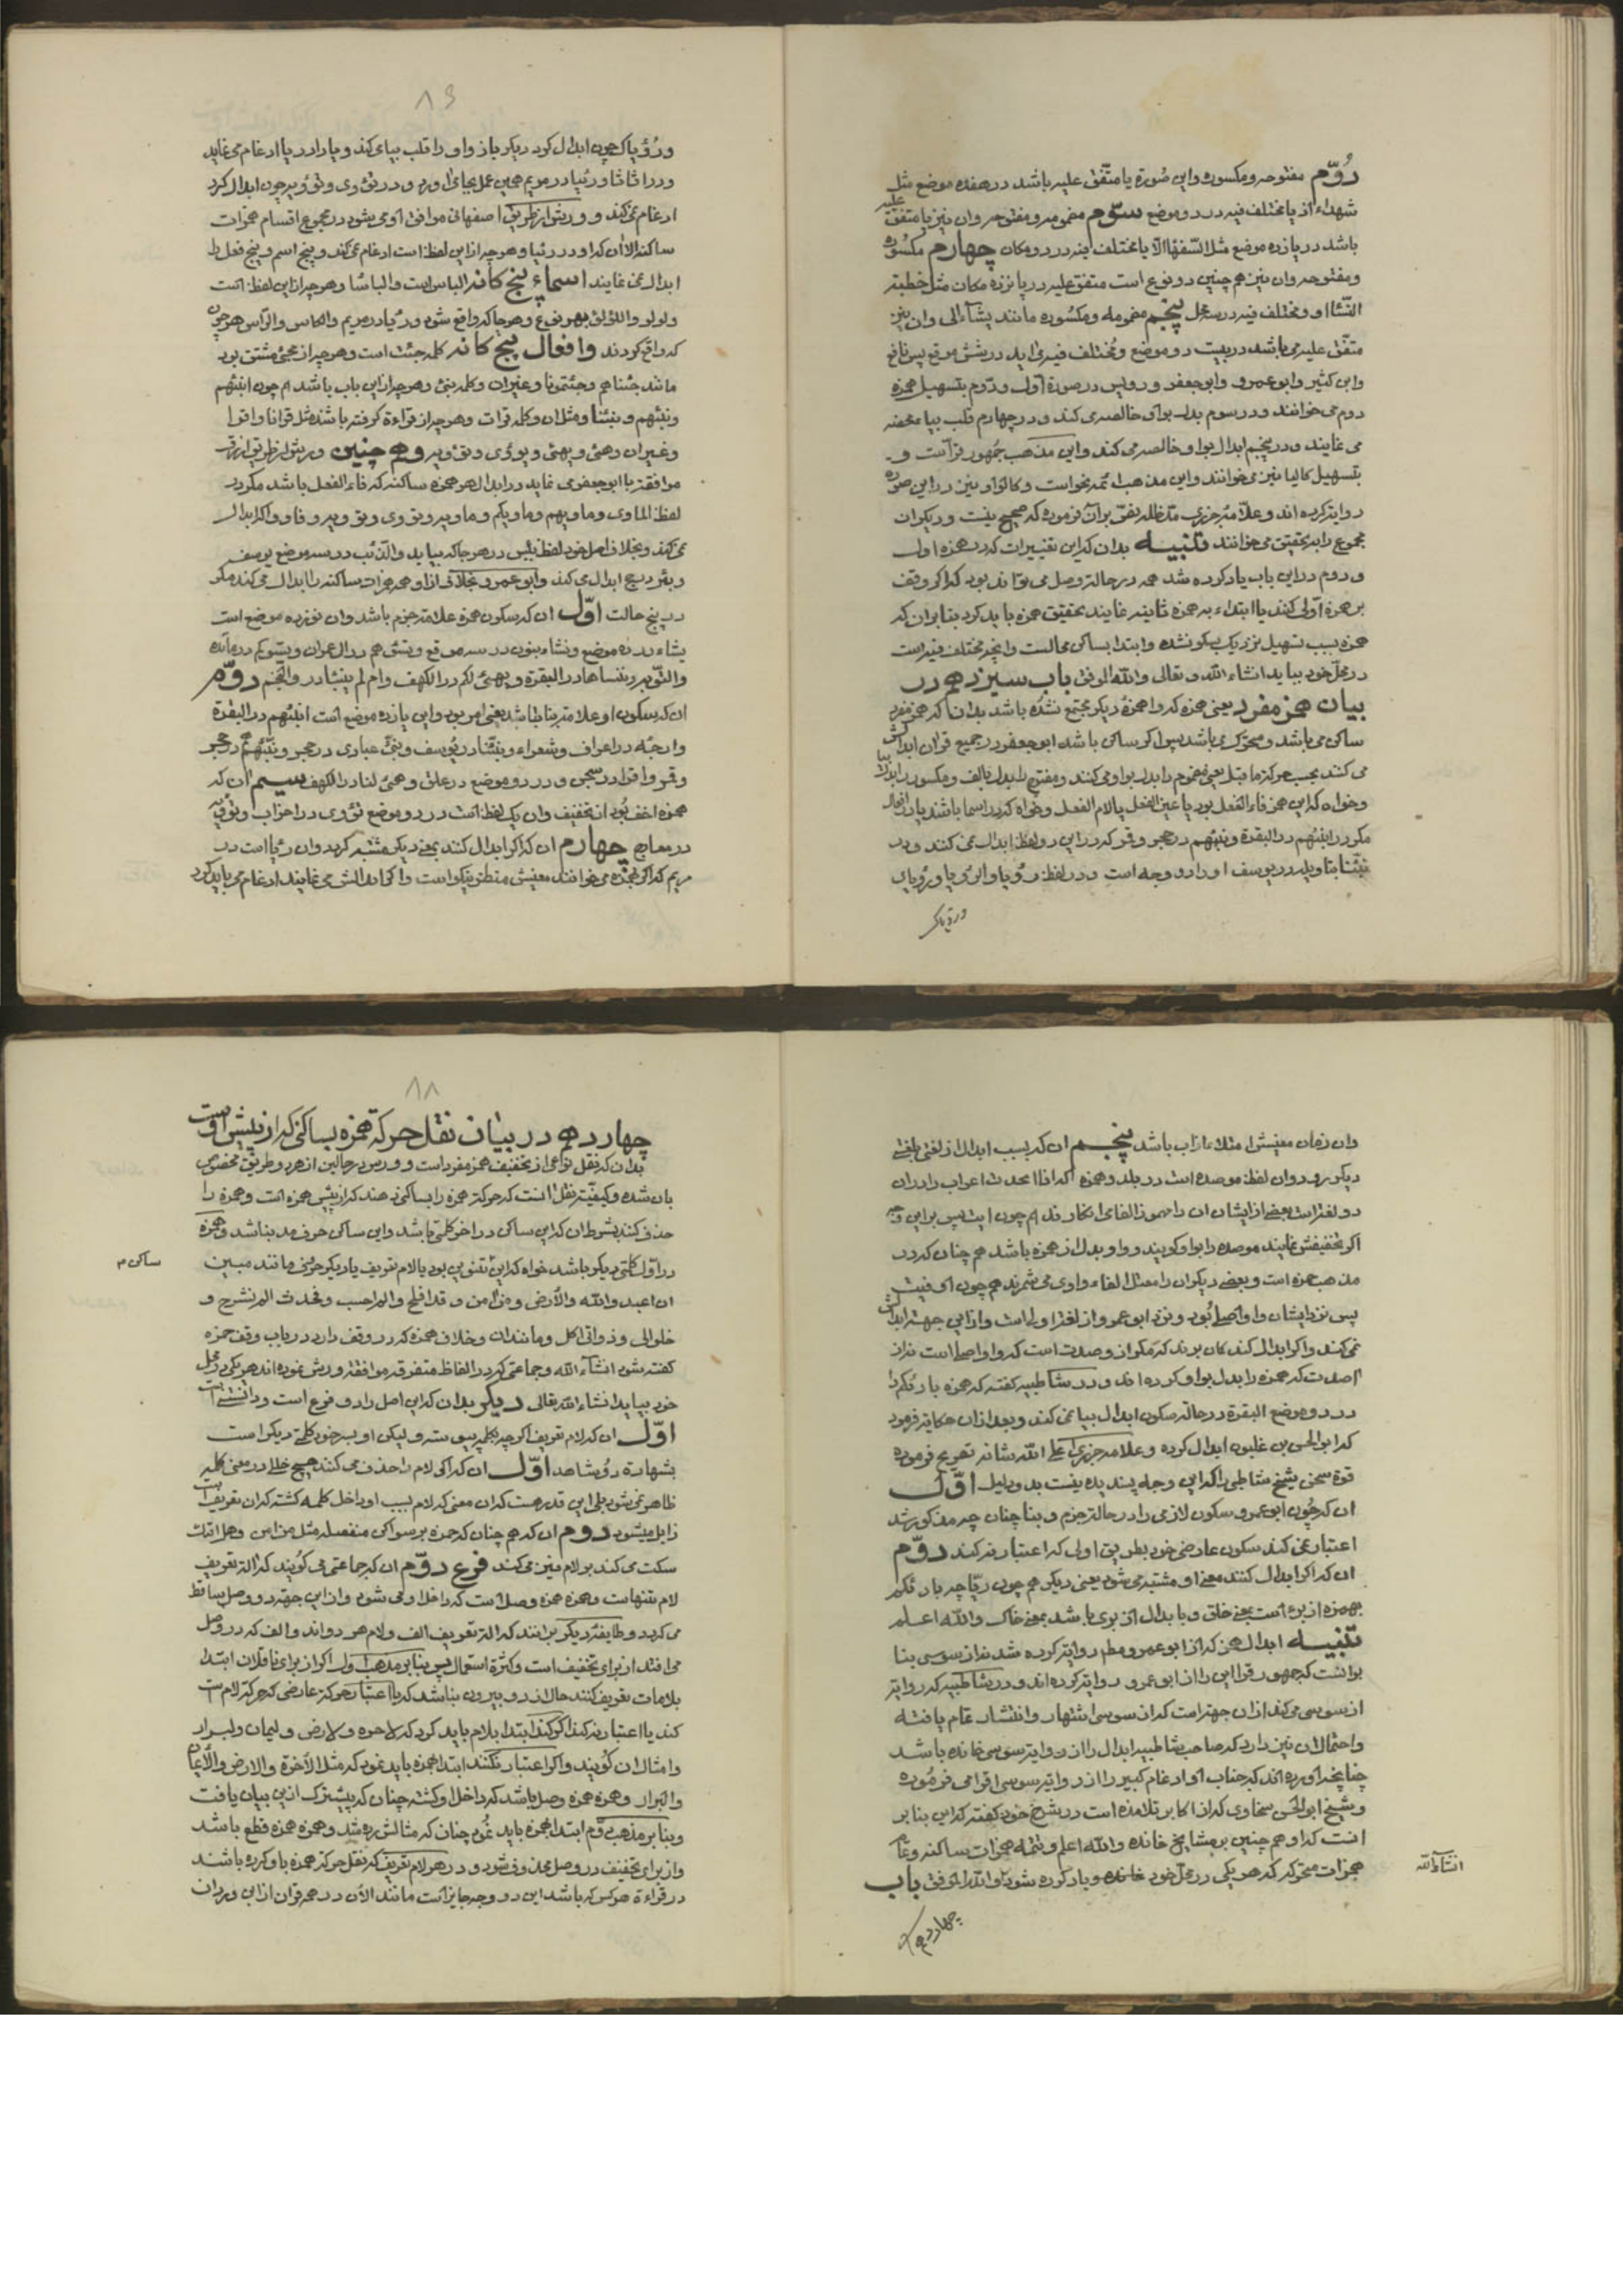 دُوّم مفتوحه ومکسوره واین صُورة یا متّفق علیه باشد در هفده موضع مثل
شهداء اذ یا مختلف فیه در دو موضع سوّم مضمومه ومفتوحه وان نیز یا متفق علیه
باشد در یازده موضع مثل السّفهاُ الا یا مختلف فیه در دو مکان چهارم مکسُوره
ومفتوحه وان نیز هم چنین دو نوع است متفق علیه در پانزده مکان مثل خطبة
النّسٓا او ومختلف فیه در سه محل پنجم مضمومه ومکسُوره مانند یشآء الی وان نیز
متفّق علیه می باشد در بیست دو موضع ومُختلف فیه می اید در شش موقع پس نافع
وابن کثیر وابو عمرو وابو جعفر ورویس در صورة اول ودوّم بتسهیل همزه
دوم می خوانند ودر سوم بدل بواو خالصه می کند ودر چهارم قلب بیاء محضه
می نمایند ودر پنجم ابدال بواو خالصه می کند واین مذهب جُمهور قرآ است و
بتسهیل کالیا نیز می خوانند واین مذهب ائمّه نحو است وکالواو نیز در این صوره
روایة کرده اند وعلّامه جزری مدّ ظله نفی بر آن فرموده که صحیح نیست ودیکران
مجموع را بتحقیق می خوانند تنبیه بدان که این تغییرات که در همزه اول
ودوم در این باب یاد کرده شد همه در حالة وصل می تواند بود که اکر وقف
بر همزه اوّلی کنند یا ابتداء به همزه ثانیه نمایند تحقیق همزه باید کرد بنا بر ان که
همزه بسبب تسهیل نزدیک بسکون شده وابتدا بساکن محالست وانچه مختلف فیه است
در محلّ خود بیاید انشاء الله تعالی والله الموفق باب سیزدهم در
بیان همز مفرد یعنی همزه که با همزهٔ دیکر مجتمع نشده باشد بدان که همز مفرد
ساکن می باشد ومتحرّک می باشد پس اکر ساکن باشد ابو جعفر در جمیع قران ابدالش
می کنند بحسب حرکة ما قبل یعنی مضموم را بدل بواو می کنند ومفتوح را بدل بالف ومکسور را بدل بیا
وخواه که این همز فاء الفعل بود یا عین الفعل یا لام الفعل وخواه که در اسما باشد یا در افعال
مکر در انبئهم در البقرة ونبئهم در حجر وقمر که در این دو لفظ ابدال نمی کنند ودر
نبئنا بتاویله در یوسف او را دو وجه است ودر لفظ رؤیا والرؤیا ورُویای
ورؤیاک
۸۶
ورُؤیاک چون ابدال کرد دیکر باز واو را قلب بیا می کند ویا را در یا ادغام می نماید
ودر اثاثا ورئیا در مریم همین عمل بجای اورد ودر تؤوی وتؤویه چون ابدال کرد
ادغام نمی کند وورش از طریق اصفهانی موافق او می شود در مجموع اقسام همزات
ساکنه الا ان که او در رئیا وهر چه از این لفظ است ادغام نمی کند وپنج اسم وپنج فعل را
ابدال نمی نماید اسماء پنج کانه الباس است والباسا وهر چه از این لفظ است
ولولو واللؤلؤ بهر نوع وهر جا که واقع شود ورئیا در مریم والکاس والراس هر جون
که واقع کردند وافعال پنج کانه کلمه جئت است وهر چه از مجیٔ مشتق بود
مانند جئناهم وجئتمونا وغیر ان وکلمه نبئ وهر چه از این باب باشد هم چون انبئهم
ونبئهم ونبئنا ومثل ان وکلمه قرات وهر چه از قراءة کرفته باشد مثل قرانا واقرا
وغیر ان وهئ ویهئ وتؤوی وتؤویه وهم چنین ورش از طریق ازرق
موافقة با ابو جعفر می نماید در ابدال هر همزه ساکنه که فاء الفعل باشد مکر در
لفظ الماوی وماویهم وماویکم وماویه وتؤوی وتؤویه وفاووا که ابدال
نمی کند وبخلاف اصل خود لفظ بئس در هر جا که بیاید والذئب در سه موضع یوسف
وبئر در حج ابدال می کند وابو عمرو بخلافی از او همه همزات ساکنه را ابدال می کند مکر
در پنج حالت اوّل ان که سکون همزه علامة جزم باشد وان نوزده موضع است
یشاء در ده موضع ونشاء بنون در سه موقع وتسؤهم در ال عمران وتسؤکم در مائده
والتوبه وننساها در البقرة ویهیئ لکم در الکهف وام لم ینبأ در والنّجم دوّم
ان که سکون او علامة بنا باشد یعنی امر بود واین یازده موضع است انبئهم در البقرة
وارجئه در اعراف وشعراء ونبئنا در یُوسف ونبئ عبادی در حجر ونبئهم در حجر
وقمر واقرا در سبحن ودر دو موضع در علق وهیئ لنا در الکهف سیم ان که
همزه اخف بُود از تخفیف وان یک لفظ است در دو موضع تؤوی در احزاب وتؤویه
در معارج چهارم ان که اکر ابدال کنند بمعنی دیکر مشتبه کردد وان رئیا است در
مریم که اکر بهمزه می خوانند معنیش منظر نیکو است واکر ابدالش می نمایند ادغام می باید کرد
وان زمان معنیش امتلاء از اب باشد پنجم ان که بسبب ابدال از لغتی بلغتی
دیکر رود وان لفظ موصده است در بلد وهمزه که اذا احدث اعراب را در ان
دو لغت است بعضی از ایشان ان را مهموز الفا می انکارند هم چون ایت پس بر این وجه
اکر تخفیفش نمایند موصده را بواو کویند وواو بدل از همزه باشد هم چنان که در
مذهب حمزه است وبعضی دیکر ان را معتل الفاء واوی می شمرند هم چون اوفیت
پس نزد ایشان واو اصلی بُود ونزد ابو عمرو از لغة اولی است واز این جهة ابدالش
نمی کند واکر ابدال کند کمان برند که مکر از وصدت است که واو اصلی است نه از
اصدت که همزه را بدل بواو کرده اند ودر شاطبیه کفته که همزه بارئکم را
در دو موضع البقرة در حالة سکون ابدال بیا نمی کند وبعد از ان حکایة فرمود
که ابو الحسن بن غلبون ابدال کرده وعلامه جزری اعلی الله شانه تصریح فرموده
قوة سخن شیخ شاطبی را که این وجه پسندیده نیست بدو دلیل اوّل
ان که چُون ابو عمرو سکون لازمی را در حالة جزم وبنا چنان چه مذکور شد
اعتبار نمی کند سکون عارضی خود بطریق اولی که اعتبار نه کند دوّم
ان که اکر ابدال کنند معنی او مشتبه می شود بمعنی دیکر هم چون ریّا چه بارئکم
بهمزه از برء است بمعنی خلق وبا بدال از بری باشد بمعنی خاک والله اعلم
تنبیه ابدال همز که از ابو عمرو مطلق روایة کرده شد نه از سوسی بنا
بر انست که جمهور قرا این را از ابو عمرو روایة کرده اند ودر شاطبیه که روایة
از سوسی می کند از ان جهة است که از سوسی اشتهار وانتشار تمام یافته
واحتمال ان نیز دارد که صاحب شاطبیه ابدال را از روایة سوسی خوانده باشد
چنانچه اورده اند که جناب او ادغام کبیر را از روایة سوسی اقرا می فرمُوده
وشیخ ابو الحسن سخاوی که از اکابر تلامذه است در شرح خود کفته که این بنا بر
انست که او هم چنین بر مشایخ خوانده والله اعلم وتتمه همزات ساکنه وتمام
همزات متحرکه که هر یکی در محلّ خود یاد کرده شود والله الموفق باب
انشاءالله
چهاردهم
۸۸
چهاردهم در بیان نقل حرکة همزه بساکنی که از پیش اوست
بدان که نقل نوعی از تخفیف همز مفرد است وورش در حالین از هر دو طریق مخصوص
بان شده وکیفیّة نقل انست که حرکة همزه را بساکنی دهند که از پیش همزه است وهمزه را
حذف کنند بشرط ان که این ساکن در اخر کلمتی باشد واین ساکن حرف مد نباشد وهمزه
در اوّل کلمتی دیکر باشد خواه که این ساکن تنوین بود یا لام تعریف یا دیکر حرفی مانند مبین
ساکن م
ان اعبدوا الله والأرض ومن امن وقد افلح والم احسب وفحدث الم نشرح و
خلوا الی وذواتی اکل ومانند ان وخلاف همزه که در وقف دارد در باب وقف حمزه
کفته شود انشآء الله وجماعتی که در الفاظ متفرقه موافقة ورش نموده اند هر یکی در محل
خود بیاید انشاء الله تعالی دیکر بدان که این اصل را دو فرع است ودانستنی است
اوّل ان که لام تعریف اکر چه بکلمه پیوسته ولیکن او بسر خود کلمتی دیکر است
بشهادة دو شاهد اوّل ان که اکر لام را حذف می کنند هیچ خللی در معنی کلمه
ظاهر نمی شود بلی این قدر هست که ان معنی که لام بسبب او داخل کلمه کشته که ان تعریف است
زایل می شود دوم ان که هم چنان که حمزه بر سواکن منفصله مثل من امن وهل اتاک
سکت می کند بر لام نیز می کند فرع دوّم ان که جماعتی می کُویند که الة تعریف
لام تنهاست وهمزه همزه وصل است که داخل او می شود واز این جهة در وصل ساقط
می کردد وطایفهٔ دیکر بر انند که الة تعریف الف ولام هر دو اند والف که در وصل
می افتد از برای تخفیف است وکثرة استعمال پس بنا بر مذهب اول اکر از برای ناقلان ابتدا
بلامات تعریف کنند حال از دو بیرون نباشد که یا اعتبار حرکة عارضی که حرکة لام است
کند یا اعتبار نه کند اکر کند ابتدا بلام باید کرد که لاخره ولارض ولیمان ولبرار
وامثال ان کویند واکر اعتبار نکند ابتدا بهمزه باید نمود که مثل الآخرة والارض والأیمان
والبرار وهمزه همزه وصل باشد که داخل او کشته چنان که پیشترک از این بیان یافت
وبنا بر مذهب دوّم ابتدا بهمزه باید نمُود چنان که مثالش زده شد وهمزه همزه قطع باشد
واز برای تخفیف در وصل محذوف شود ودر هر لام تعریف که نقل حرکة همزه باو کرده باشد
در قراءة هر کس که باشد این دو وجه جایز است مانند الآن در همه قران از این وردان